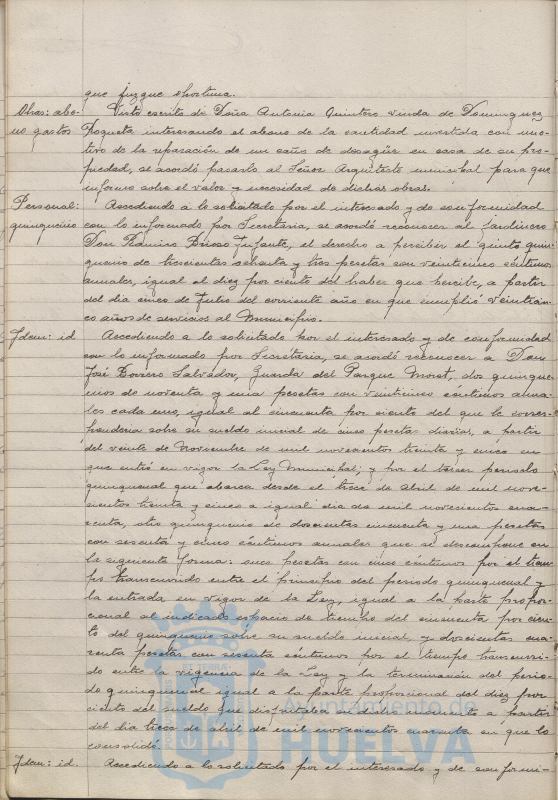 que juzgue oportuna.
Obras: abo- Visto escrito de Doña Antonia Quintero viuda de Dominguez
no gastos Roqueta interesando el abono de la cantidad invertida con mo-
tivo de la reparación de un caño de desagüe en casa de su pro-
piedad, se acordó pasarlo al Señor Arquitecto municipal para que
informe sobre el valor y necesidad de dichas obras.
Personal: Accediendo a lo solicitado por el interesado y de conformidad
quinquenio con lo informado por Secretaria, se acordó reconocer al jardinero
Don Ramiro Infante, el derecho a percibir el quinto quin-
quenio de trescientas ochenta y tres pesetas con veinticinco céntimos
anuales, igual al diez por ciento del haber que percibe, a partir
del dia cinco de Julio del corriente año en que cumplió veinticin-
co años de servicios al Municipio.
Idem: id. Accediendo a lo solicitado por el interesado y de conformidad
con lo informado por Secretaria, se acordó reconocer a Don
José Borrero Salvador, Guarda del Parque Moret, dos quinque-
nios de noventa y una pesetas con veinticinco céntimos anua-
les cada uno, igual al cincuenta por ciento del que le corres-
pondería sobre su sueldo inicial de cinco pesetas diarias, a partir
del veinte de Noviembre de mil novecientos treinta y cinco en
que entró en vigor la Ley Municipal; y por el tercer periodo
quinquenal que abarca desde el trece de abril de mil nove-
cientos treinta y cinco a igual dia de mil novecientos cua-
renta, otro quinquenio de doscientas cincuenta y una pesetas
con sesenta y cinco céntimos anuales que se descompone en
la siguiente forma: once pesetas con cinco céntimos por el tiem-
po transcurrido entre el principio del periodo quinquenal y
la entrada en vigor de la Ley, igual a la parte propor-
cional al indicado espacio de tiempo del cincuenta por cien-
to del quinquenio sobre su sueldo inicial, y doscientas cua-
renta pesetas con sesenta céntimos por el tiempo transcurri-
do entre la vigencia de la Ley y la terminación del perio-
do quinquenal igual a la parte proporcional del diez por
ciento del sueldo que disfrutaba en dicho momento a partir
del dia trece de abril de mil novecientos cuarenta en que lo
consolidó.
Idem: id. Accediendo a lo solicitado por el interesado y de conformi-
Ayuntamiento de
HUELVA